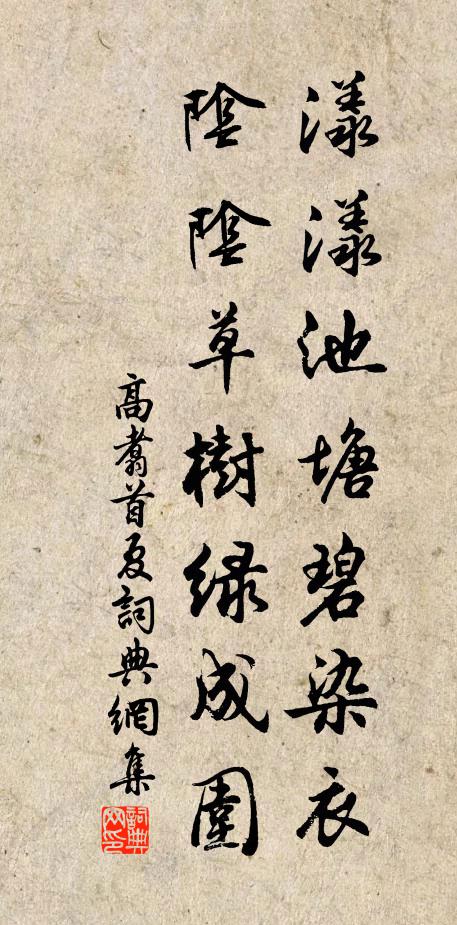 漾漾池塘碧染衣
陰陰草樹綠成園
高翥首夏詞典網集
詞典
网印